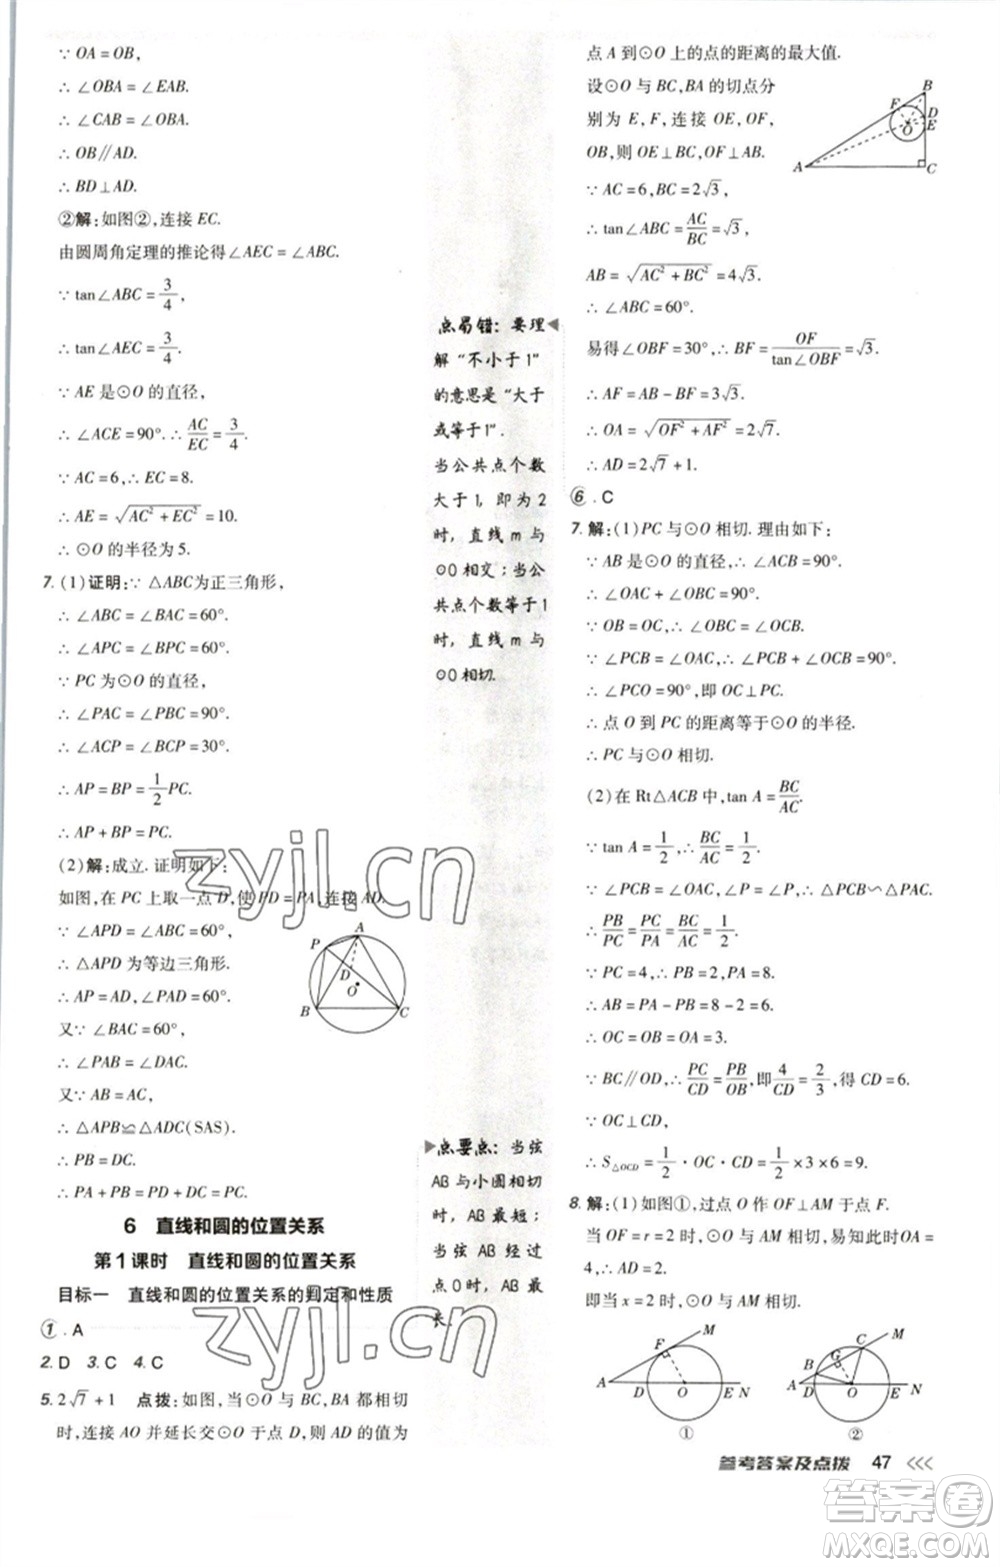 ∵ OA = OB,
∴ ∠OBA = ∠EAB.
∴ ∠CAB = ∠OBA.
∴ OB∥AD.
∴ BD⊥AD.
②解:如图②,连接 EC.
由圆周角定理的推论得∠AEC = ∠ABC,
∵ tan∠ABC = 3/4,
∴ tan∠AEC = 3/4.
∵ AE 是⊙O 的直径,
∴ ∠ACE = 90°. ∴ AC/EC = 3/4.
∵ AC = 6, ∴ EC = 8.
∴ AE = √(AC² + EC²) = 10.
∴ ⊙O 的半径为 5.
7. (1)证明:∵ △ABC为正三角形,
∴ ∠ABC = ∠BAC = 60°.
∴ ∠APC = ∠BPC = 60°.
∵ PC 为⊙O 的直径,
∴ ∠PAC = ∠PBC = 90°.
∴ ∠ACP = ∠BCP = 30°.
∴ AP = BP = 1/2 PC.
∴ AP + BP = PC.
(2)解:成立. 证明如下:
如图,在 PC 上取一点 D,使 PD = PA,连接 AD.
∵ ∠APD = ∠ABC = 60°,
∴ △APD 为等边三角形.
∴ AP = AD, ∠PAD = 60°.
又∵ ∠BAC = 60°,
∴ ∠PAB = ∠DAC.
又∵ AB = AC,
∴ △APB≌△ADC(SAS).
∴ PB = DC.
∴ PA + PB = PD + DC = PC.
P A D O B C
6 直线和圆的位置关系
第1课时 直线和圆的位置关系
目标一 直线和圆的位置关系的判定和性质
① . A
2. D 3. C 4. C
5. 2√7 + 1 点拨:如图,当⊙O 与 BC, BA 都相切
时,连接 AO 并延长交⊙O 于点 D,则 AD 的值为
点易错:要理
解“不小于1”
的意思是“大于
或等于1”.
当公共点个数
大于1,即为2
时,直线m与
⊙O相交;当公
共点个数等于1
时,直线m与
⊙O相切.
点要点:当弦
AB与小圆相切
时,AB最短;
当弦AB经过
点O时,AB最
长.
点 A 到⊙O 上的点的距离的最大值.
设⊙O 与 BC,BA 的切点分
别为 E,F,连接 OE,OF,
OB,则 OE⊥BC,OF⊥AB.
B F D O E A C
∵ AC = 6, BC = 2√3,
∴ tan∠ABC = AC/BC = √3,
AB = √(AC² + BC²) = 4√3.
∴ ∠ABC = 60°.
易得∠OBF = 30°, ∴ BF = OF/tan∠OBF = √3.
∴ AF = AB − BF = 3√3.
∴ OA = √(OF² + AF²) = 2√7.
∴ AD = 2√7 + 1.
⑥ . C
7. 解:(1)PC 与⊙O 相切. 理由如下:
∵ AB 是⊙O 的直径, ∴ ∠ACB = 90°.
∴ ∠OAC + ∠OBC = 90°.
∵ OB = OC, ∴ ∠OBC = ∠OCB.
∵ ∠PCB = ∠OAC, ∴ ∠PCB + ∠OCB = 90°.
∴ ∠PCO = 90°,即 OC⊥PC.
∴ 点 O 到 PC 的距离等于⊙O 的半径.
∴ PC 与⊙O 相切.
(2)在 Rt△ACB 中,tan A = BC/AC.
∵ tan A = 1/2, ∴ BC/AC = 1/2.
∵ ∠PCB = ∠OAC, ∠P = ∠P, ∴ △PBC∽△PCA.
∴ PB/PC = PC/PA = BC/AC = 1/2.
∵ PC = 4, ∴ PB = 2, PA = 8.
∴ AB = PA − PB = 8 − 2 = 6.
∴ OC = OB = OA = 3.
∵ BC∥OD, ∴ PC/CD = PB/OB,即 4/CD = 2/3,得 CD = 6.
∵ OC⊥CD,
∴ S△OCD = 1/2 · OC · CD = 1/2 ×3×6 = 9.
8. 解:(1)如图①,过点 O 作 OF⊥AM 于点 F.
当 OF = r = 2 时,⊙O 与 AM 相切,易知此时OA =
4,故 AD = 2.
即当 x = 2 时,⊙O 与 AM 相切.
M F A D O E N
①
M C G B A D O E N
②
参考答案及点拨 47
zyjl.cn
答案圈
MXQE.COM